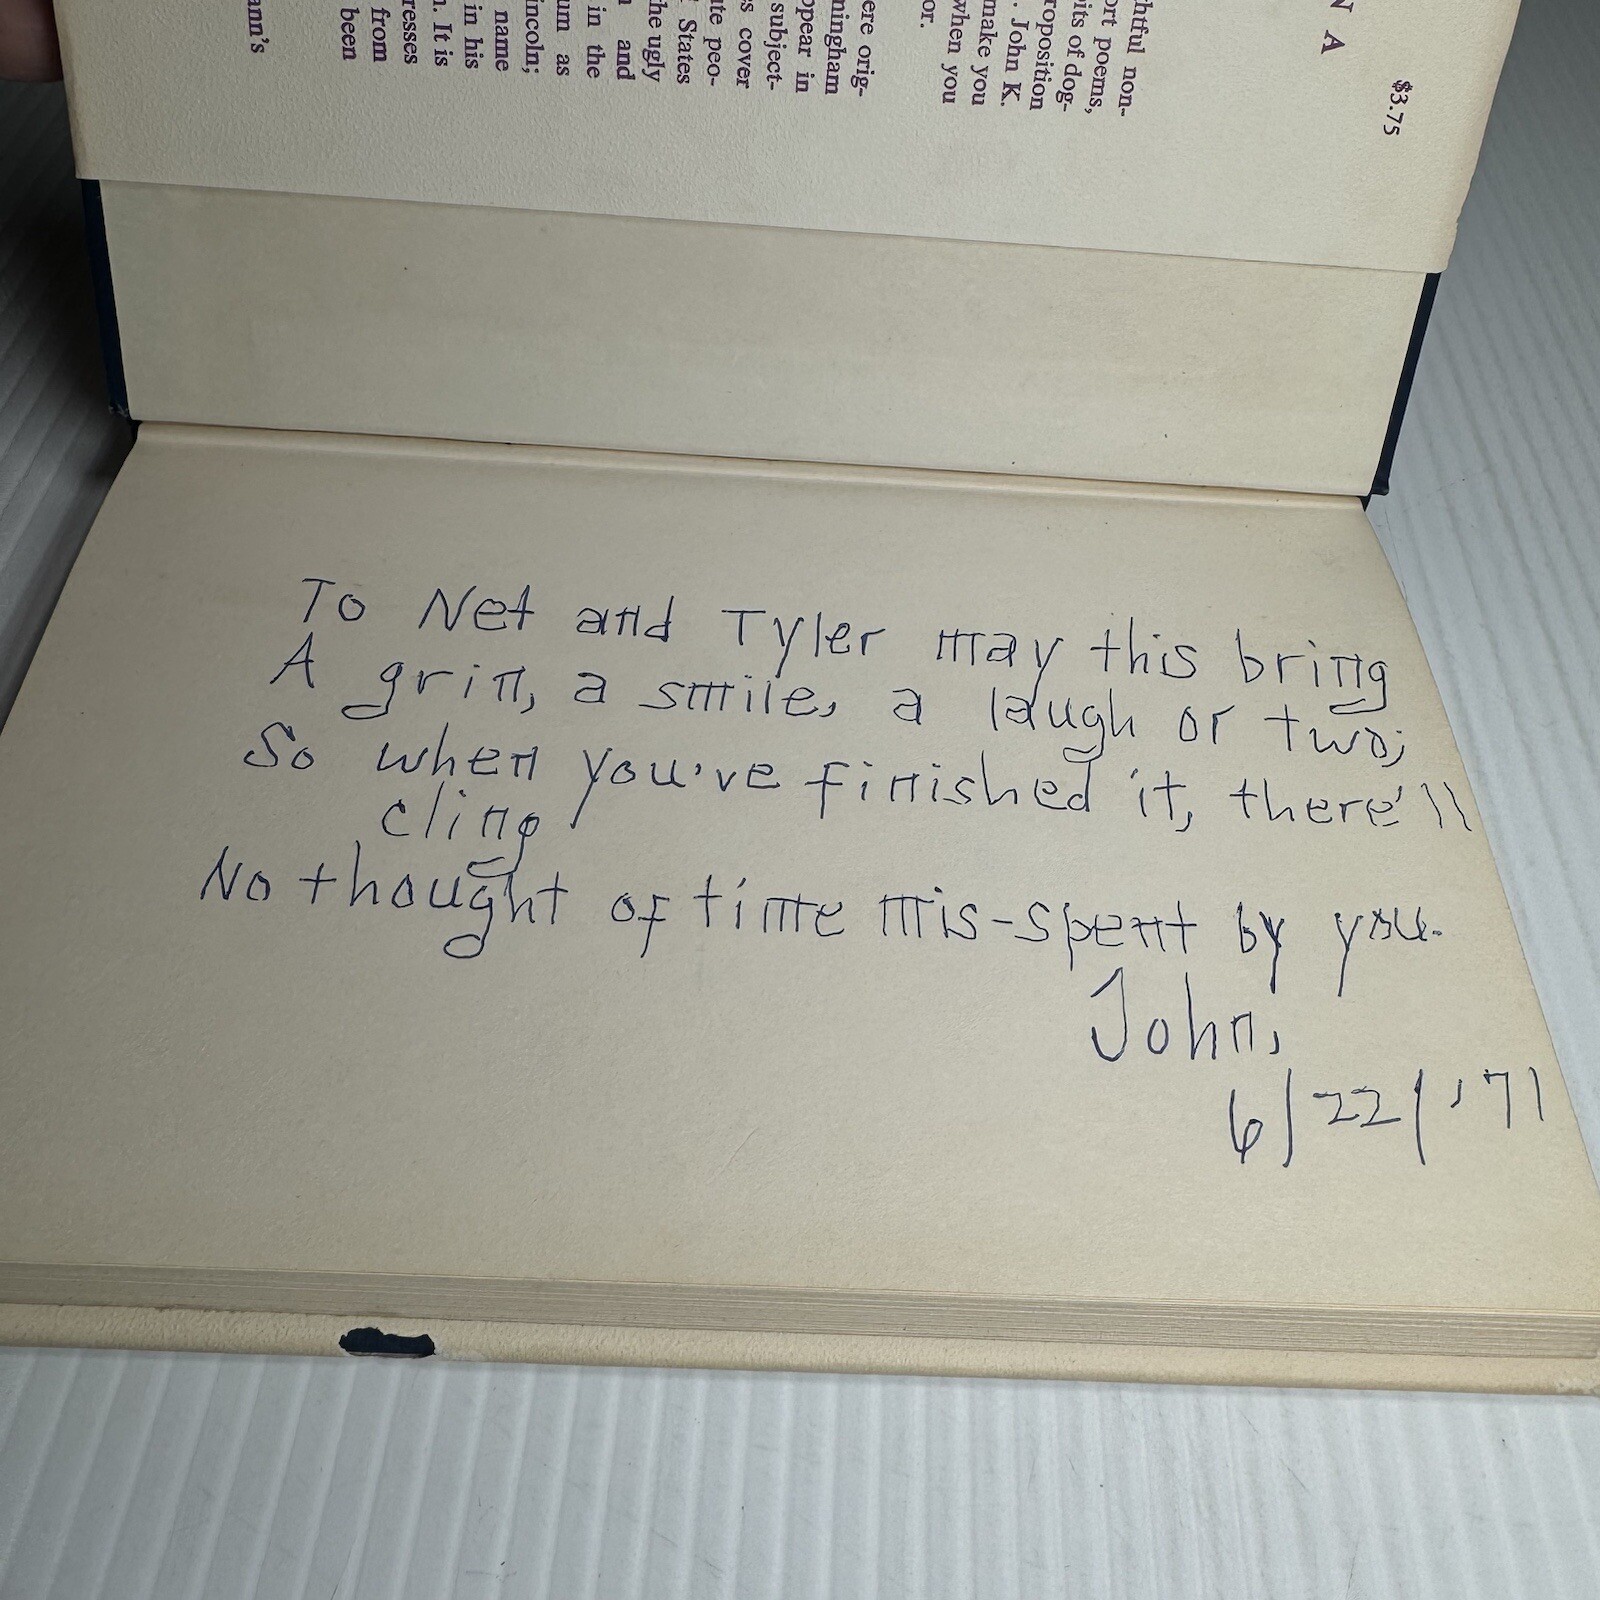 N A
$3.75
htful non-
ort poems,
bits of dog-
roposition
. John K.
make you
when you
or.
ere orig-
mingham
ppear in
subject-
s cover
te peo-
States
the ugly
and
in the
um as
incoln;
name
in his
. It is
resses
from
been
ann's
To Net and Tyler may this bring
A grin, a smile, a laugh or two;
So when you've finished it, there'll
cling
No thought of time mis-spent by you.
John,
6/22/'71